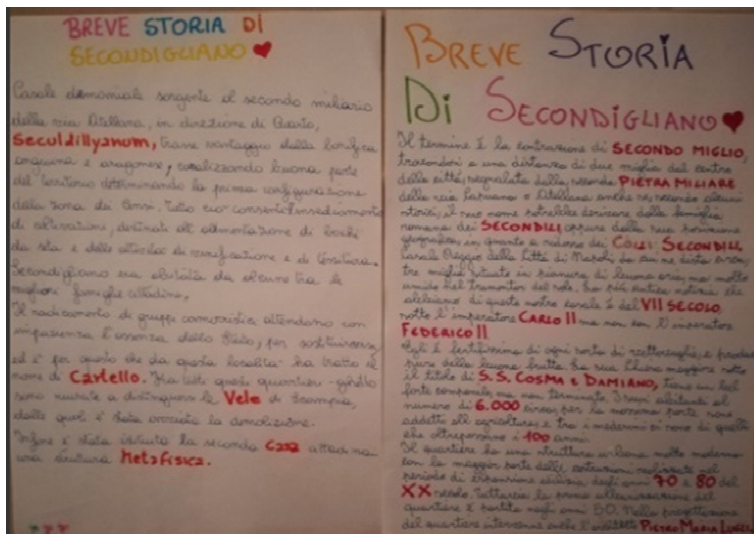 BREVE STORIA DI
SECONDIGLIANO
Casale demaniale sorgente il secondo miliario
della via Atellana, in direzione di
Seculdillyanum, trasse vantaggio dalla bonifica
angioina e aragonese, canalizzando buona parte
del territorio determinando la prima configurazione
della zona dei Censi. Tutto ciò consentì insediamento
di coltivazioni, destinati all'alimentazione di bachi
da seta e delle attività di panificazione e di tessitura.
Secondigliano era abitata da alcune tra le
migliori famiglie cittadine.
Il radicamento di gruppi camorristici attendano con
l'assenza dello Stato, per sostituirsene
ed è per questo che da questa località ha tratto il
nome di Castello. Tra tutti questi quartieri - ghetto
sono a distinguersi le Vele di Scampia,
delle quali è stata avviata la demolizione.
Infine è stata istituita la seconda Casa cittadina
una struttura Metafisica.
BREVE STORIA
DI SECONDIGLIANO
Il termine è la contrazione di SECONDO MIGLIO,
trovandosi a una distanza di due miglia dal centro
della città, segnalata dalla seconda PIETRA MILIARE
della via Capuana o Atellana anche se, secondo alcuni
storici, il suo nome potrebbe derivare dalla famiglia
romana dei SECONDILI oppure dalla sua posizione
geografica, in quanto a ridosso dei COLLI SECONDILI.
Casale Reggio della Città di Napoli da cui ne dista circa
tre miglia situato in pianura di buona aria, ma molto
umido nel tramontar del sole. La più antica notizia che
abbiamo di questo nostro casale è del VII SECOLO,
sotto l'imperatore CARLO II ma non con l'imperatore
FEDERICO II
Egli è fertilissimo di ogni sorta di vettovaglie, e produce
pure della buona frutta. La sua Chiesa maggiore sotto
il titolo di S.S. COSMA E DAMIANO, tiene un bel
forte campanile ma non terminato. I suoi abitanti al
numero di 6.000 circa, per la maggior parte sono
addetti all'agricoltura, e tra i medesimi vi sono di quelli
che oltrepassino i 100 anni.
Il quartiere ha una struttura urbana molto moderna
con la maggior parte delle costruzioni realizzate nel
periodo di espansione edilizia degli anni 70 e 80 del
XX secolo. Tuttavia la prima urbanizzazione del
quartiere è partita negli anni 50. Nella progettazione
del quartiere intervenne anche l'architetto PIETRO MARIA